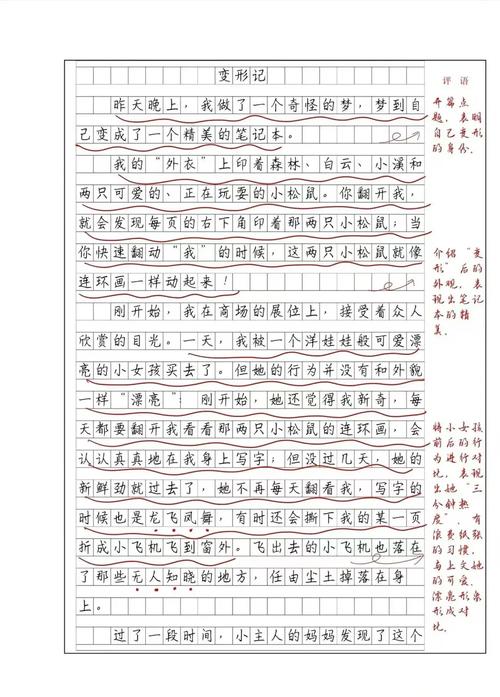 变形记
昨天晚上，我做了一个奇怪的梦，梦到自
己变成了一个精美的笔记本。
我的“外衣”上印着森林、白云、小溪和
两只可爱的、正在玩耍的小松鼠。你翻开我，
就会发现每页的右下角印着那两只小松鼠；当
你快速翻动“我”的时候，这两只小松鼠就像
连环画一样动起来！
刚开始，我在商场的展位上，接受着众人
欣赏的目光。一天，我被一个洋娃娃般可爱漂
亮的小女孩买去了。但她的行为并没有和外貌
一样“漂亮”！刚开始，她还觉得我新奇，每
天都要翻开我看看那两只小松鼠的连环画，会
认认真真地在我身上写字；但没过几天，她的
新鲜劲就过去了，她不再每天翻看我，写字的
时候也是龙飞凤舞，有时还会撕下我的某一页
折成小飞机飞到窗外。飞出去的小飞机也落在
了那些无人知晓的地方，任由尘土掉落在身
上。
过了一段时间，小主人的妈妈发现了这个
评语
开篇点
题，表明
自己变形
的身份。
介绍“变
形”后的
外观，表
现出笔记
本的精
美。
将小女孩
前后的行
为进行对
比，表现
出她“三
分钟热
度”、有
浪费纸张
的习惯，
与上文她
的可爱、
漂亮形象
形成对
比。